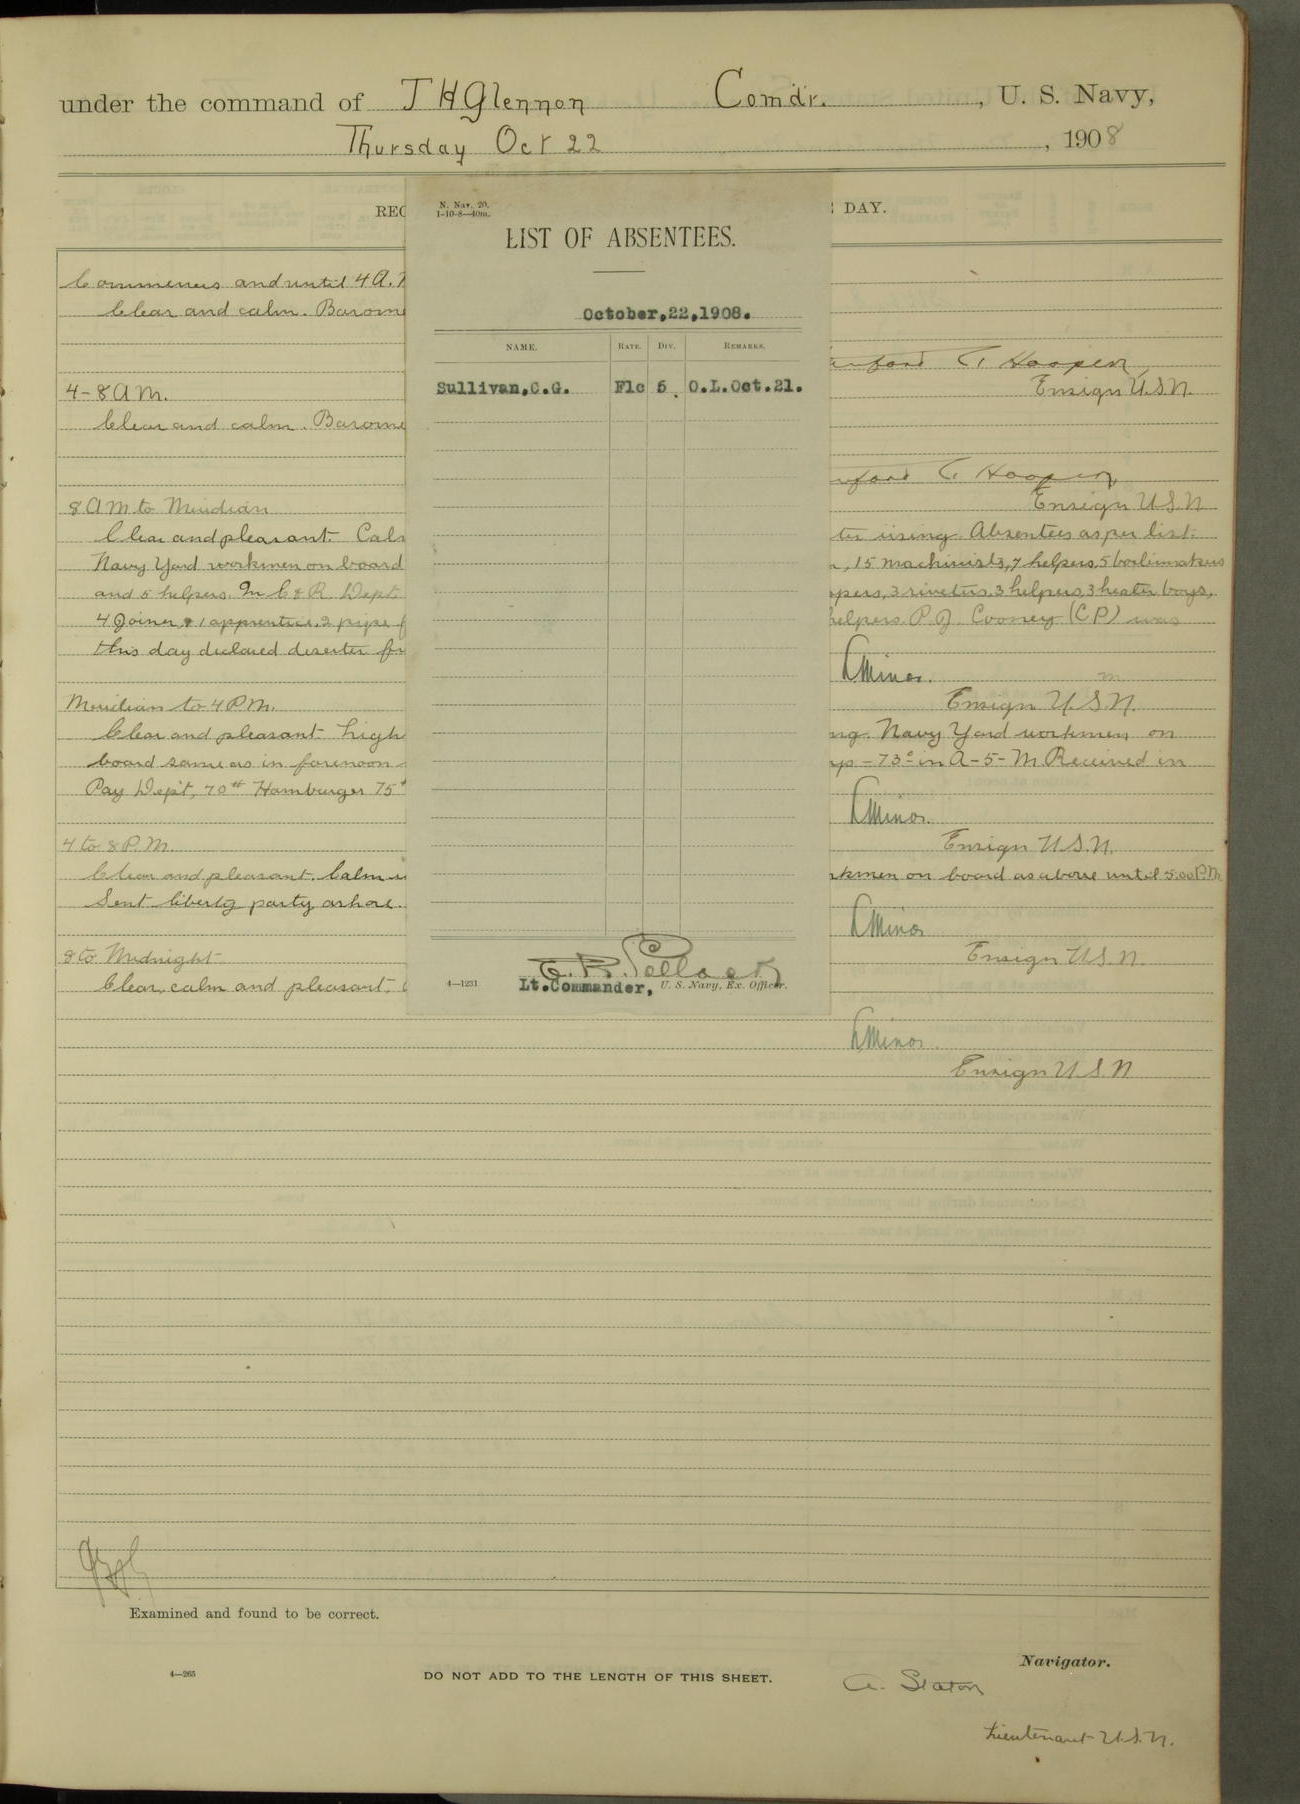 under the command of J H Glennon Comdr., U. S. Navy,
Thursday Oct 22, 1908
REC
DAY.
N. Nav. 20.
1-10-8—40m.
LIST OF ABSENTEES.
October,22,1908.
NAME. RATE. DIV. REMARKS.
Sullivan,C.G. F1c 5 O.L.Oct.21.
4—1231 Lt.Commander, U. S. Navy, Ex. Officer.
Commences and until 4 A.
Clear and calm. Barome
T. Hooper,
4-8 A M. Ensign U.S.N.
Clear and calm. Barome
T. Hooper,
8 A M to Meridian Ensign U S N
Clear and pleasant. Calm rising. Absentees as per list.
Navy Yard workmen on board , 15 machinists, 7 helpers, 5 boilermakers
and 5 helpers. In C & R Dept. 3 riveters, 3 helpers, 3 heater boys,
4 Joiners 1 apprentice, 2 pipe f helpers. P.J. Cooney (CP) was
this day declared deserter
Minor.
Meridian to 4 P.M. Ensign U.S.N.
Clear and pleasant. Navy Yard workmen on
board same as in forenoon - 73° in A-5-M Received in
Pay Dept, 70# Hamburger 75#
Minor.
4 to 8 P.M. Ensign U.S.N.
Clear and pleasant. Calm on board as above until 5:00 P.M.
Sent liberty party ashore.
Minor
8 to Midnight Ensign U.S.N.
Clear, calm and pleasant.
Minor
Ensign U.S.N
Examined and found to be correct.
Navigator.
4—265 DO NOT ADD TO THE LENGTH OF THIS SHEET.
A. Staton
Lieutenant U.S.N.